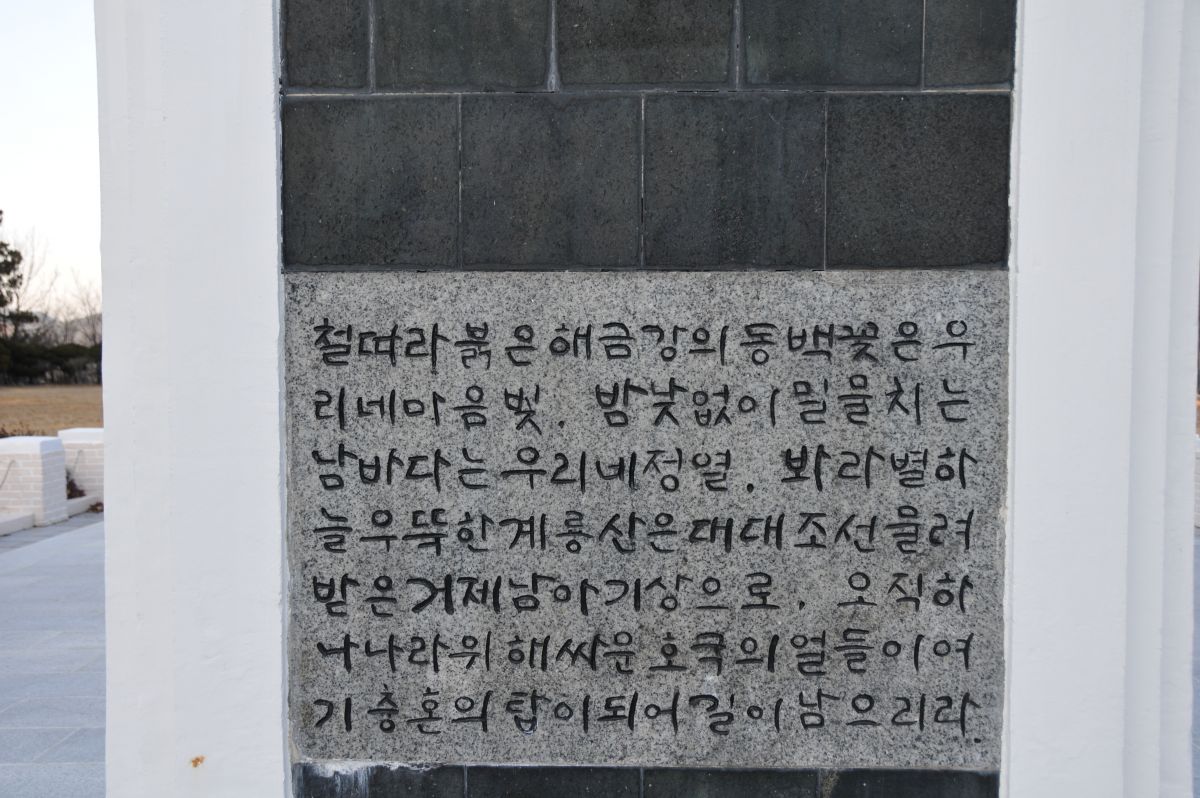 철따라붉은해금강의동백꽃은우
리네마음빛. 밤낮없이밀물치는
남바다는우리네정열. 봐라별하
늘우뚝한계룡산은대대조선물려
받은거제남아기상으로. 오직하
나나라위해싸운호국의열들이여
기충혼의탑이되어길이남으리라.